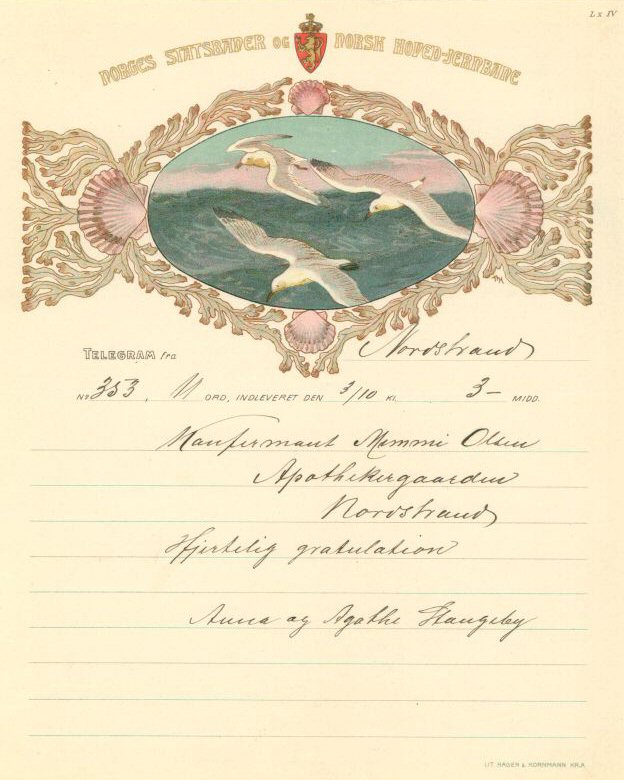 Lx IV
NORGES STATSBANER OG NORSK HOVED-JERNBANE
TELEGRAM fra Nordstrand
No 353, 11 ORD, INDLEVERET DEN 3/10 KL. 3- MIDD.
Konfirmant Mommi Olsen
Apothekergaarden
Nordstrand
Hjertelig gratulation
Anna og Agathe Stangeby
LIT. HAGEN & KORNMANN KR.A